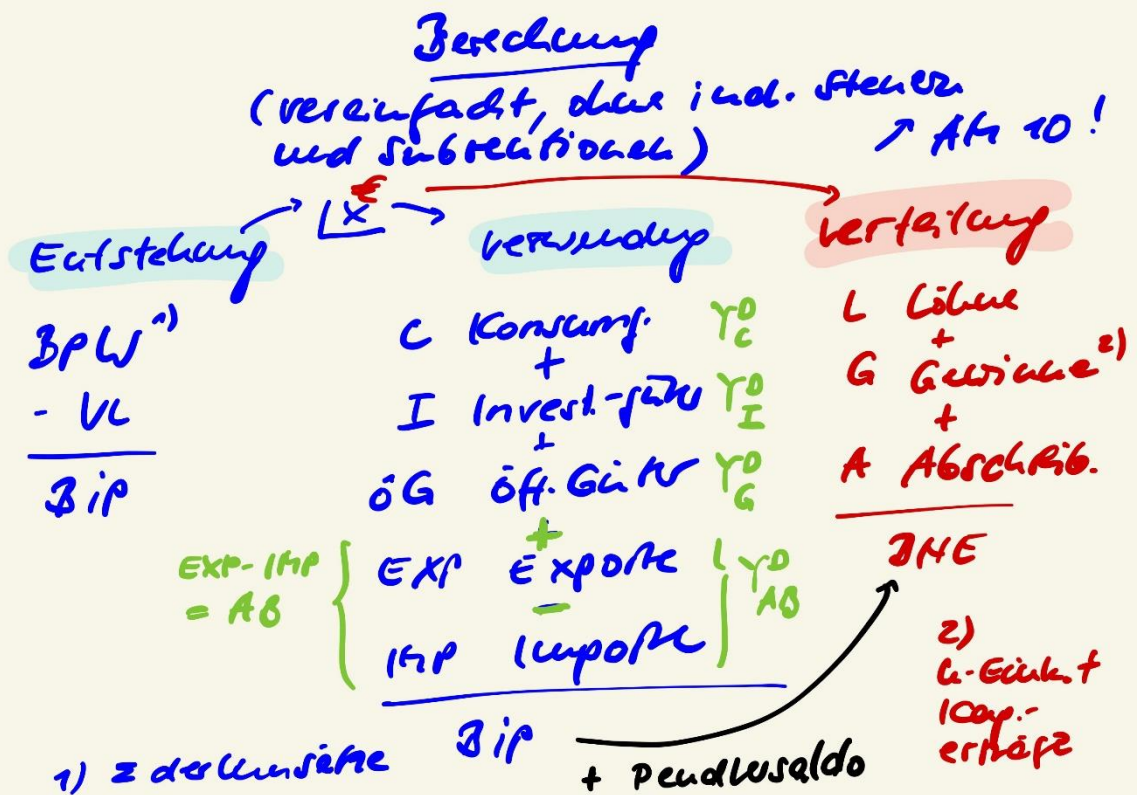 Berechnung
(vereinfacht, ohne ind. Steuern
und Subventionen)
↗ AM 10 !
€
X
Entstehung
BPW 1)
- VL
BiP
Verwendung
C Konsumg. Y^D_C
+
I Invest.-güter Y^D_I
+
öG öff. Güter Y^D_G
+
EXP Exporte
-
IMP Importe
Y^D_AB
EXP-IMP
= AB
BiP
+ Pendlersaldo
Verteilung
L Löhne
+
G Gewinne 2)
+
A Abschreib.
BNE
1) Σ der Umsätze
2)
U-Eink. +
Kap.-
erträge